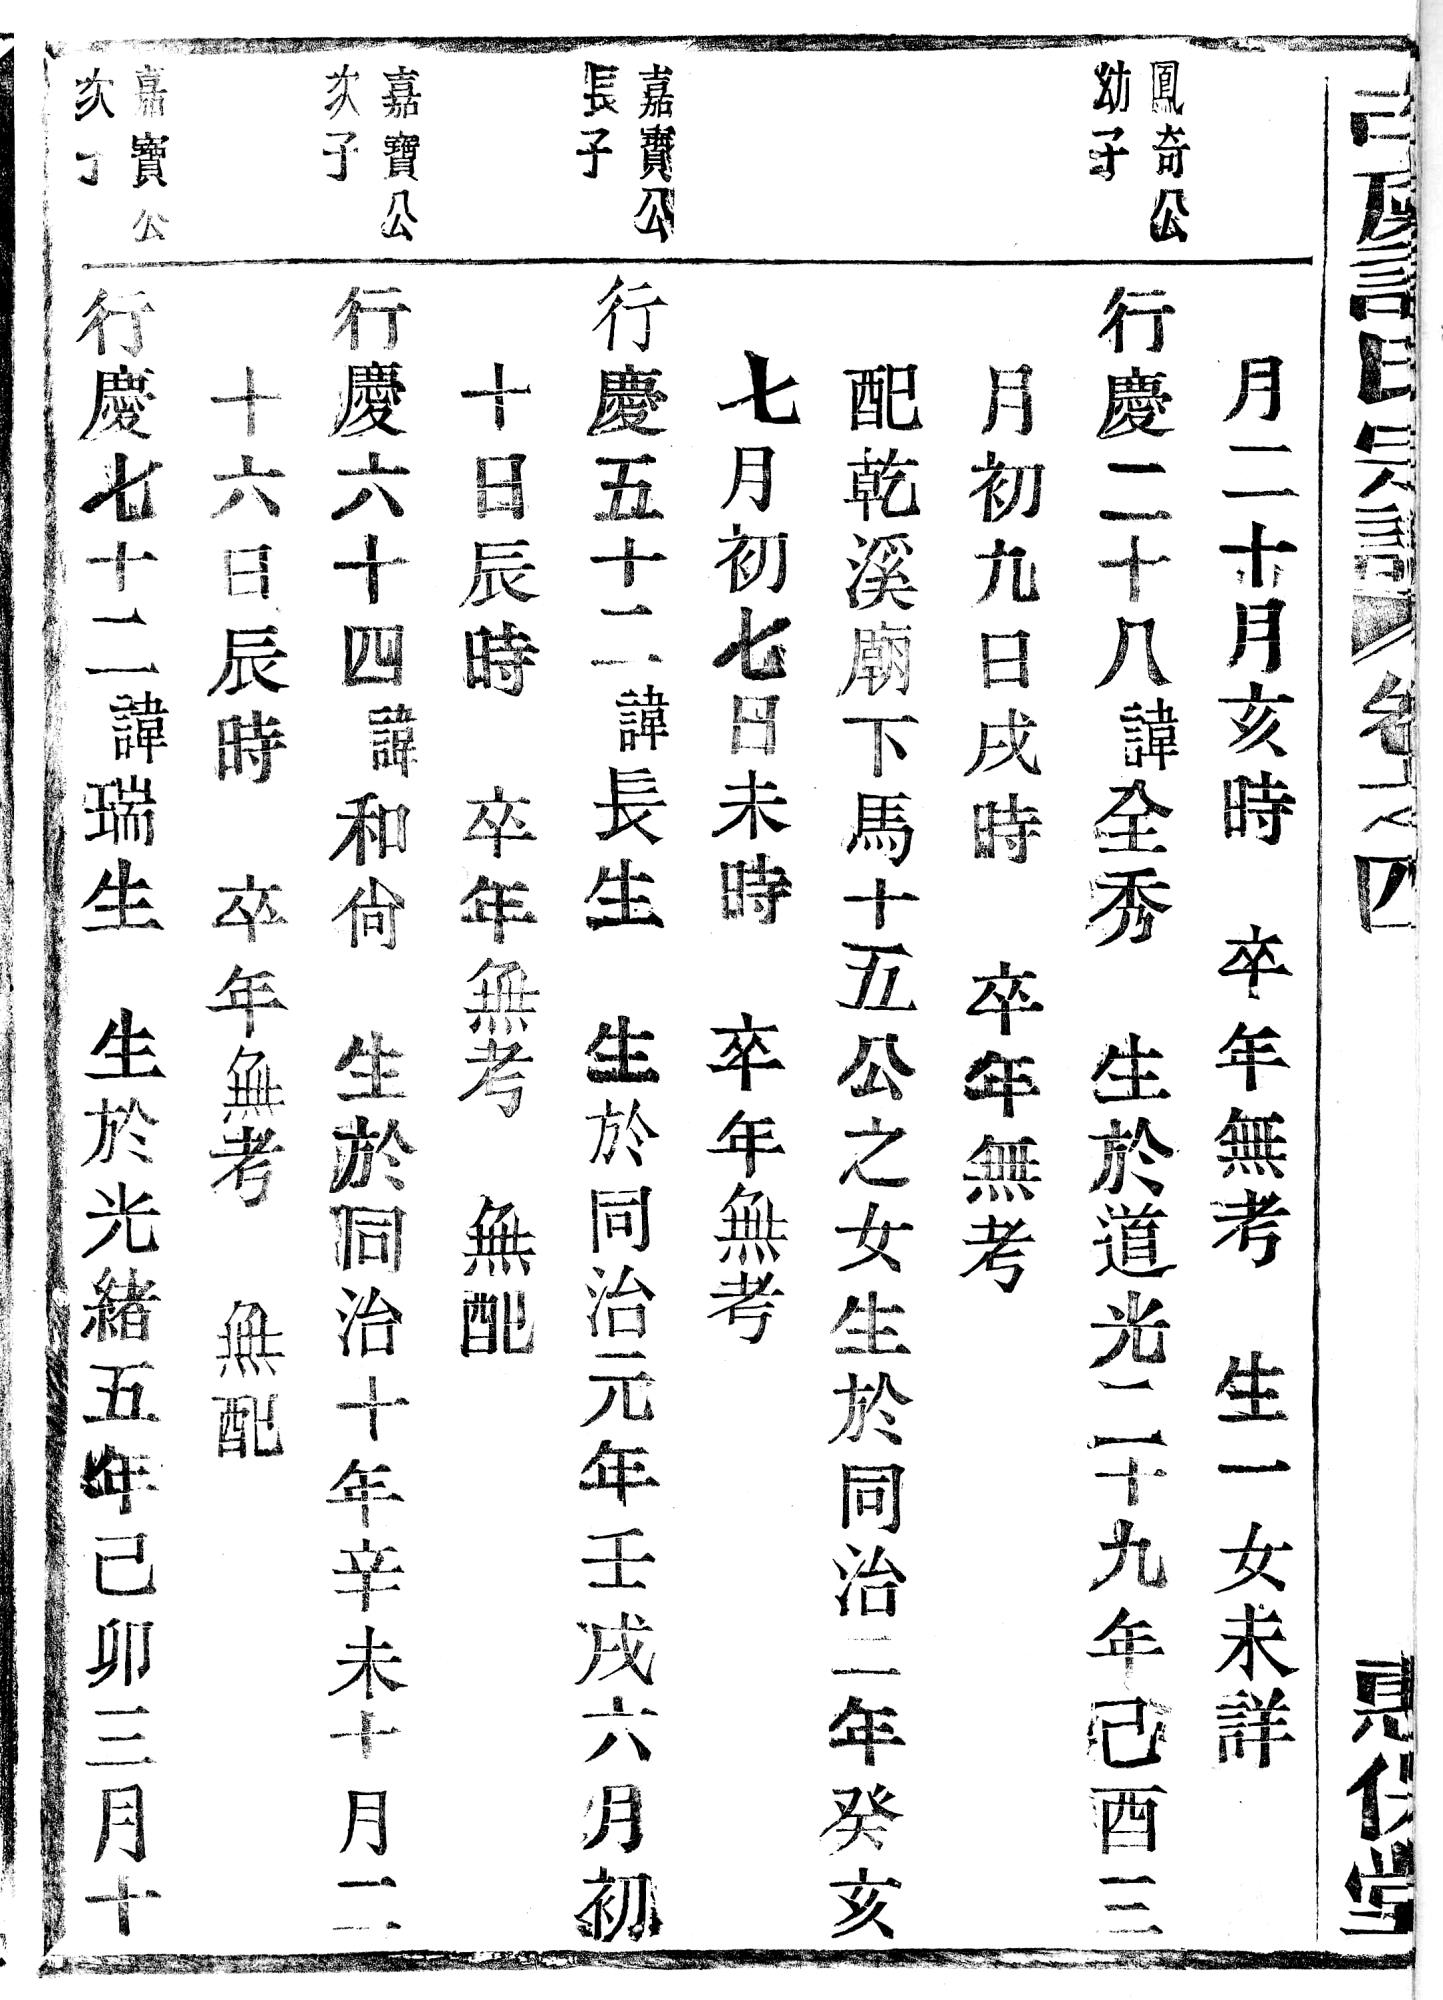 宗譜 卷之四 惠保堂
月二十月亥時 卒年無考 生一女未詳
鳳奇公
幼子
行慶二十八諱全秀 生於道光二十九年己酉三
月初九日戌時 卒年無考
配乾溪廟下馬十五公之女生於同治二年癸亥
七月初七日未時 卒年無考
嘉寶公
長子
行慶五十二諱長生 生於同治元年壬戌六月初
十日辰時 卒年無考 無配
嘉寶公
次子
行慶六十四諱和尙 生於同治十年辛未十月二
十六日辰時 卒年無考 無配
嘉寶公
次子
行慶七十二諱瑞生 生於光緒五年己卯三月十